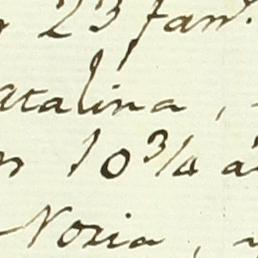 23 fan.
atalina,
10 3/4 a
Noria,